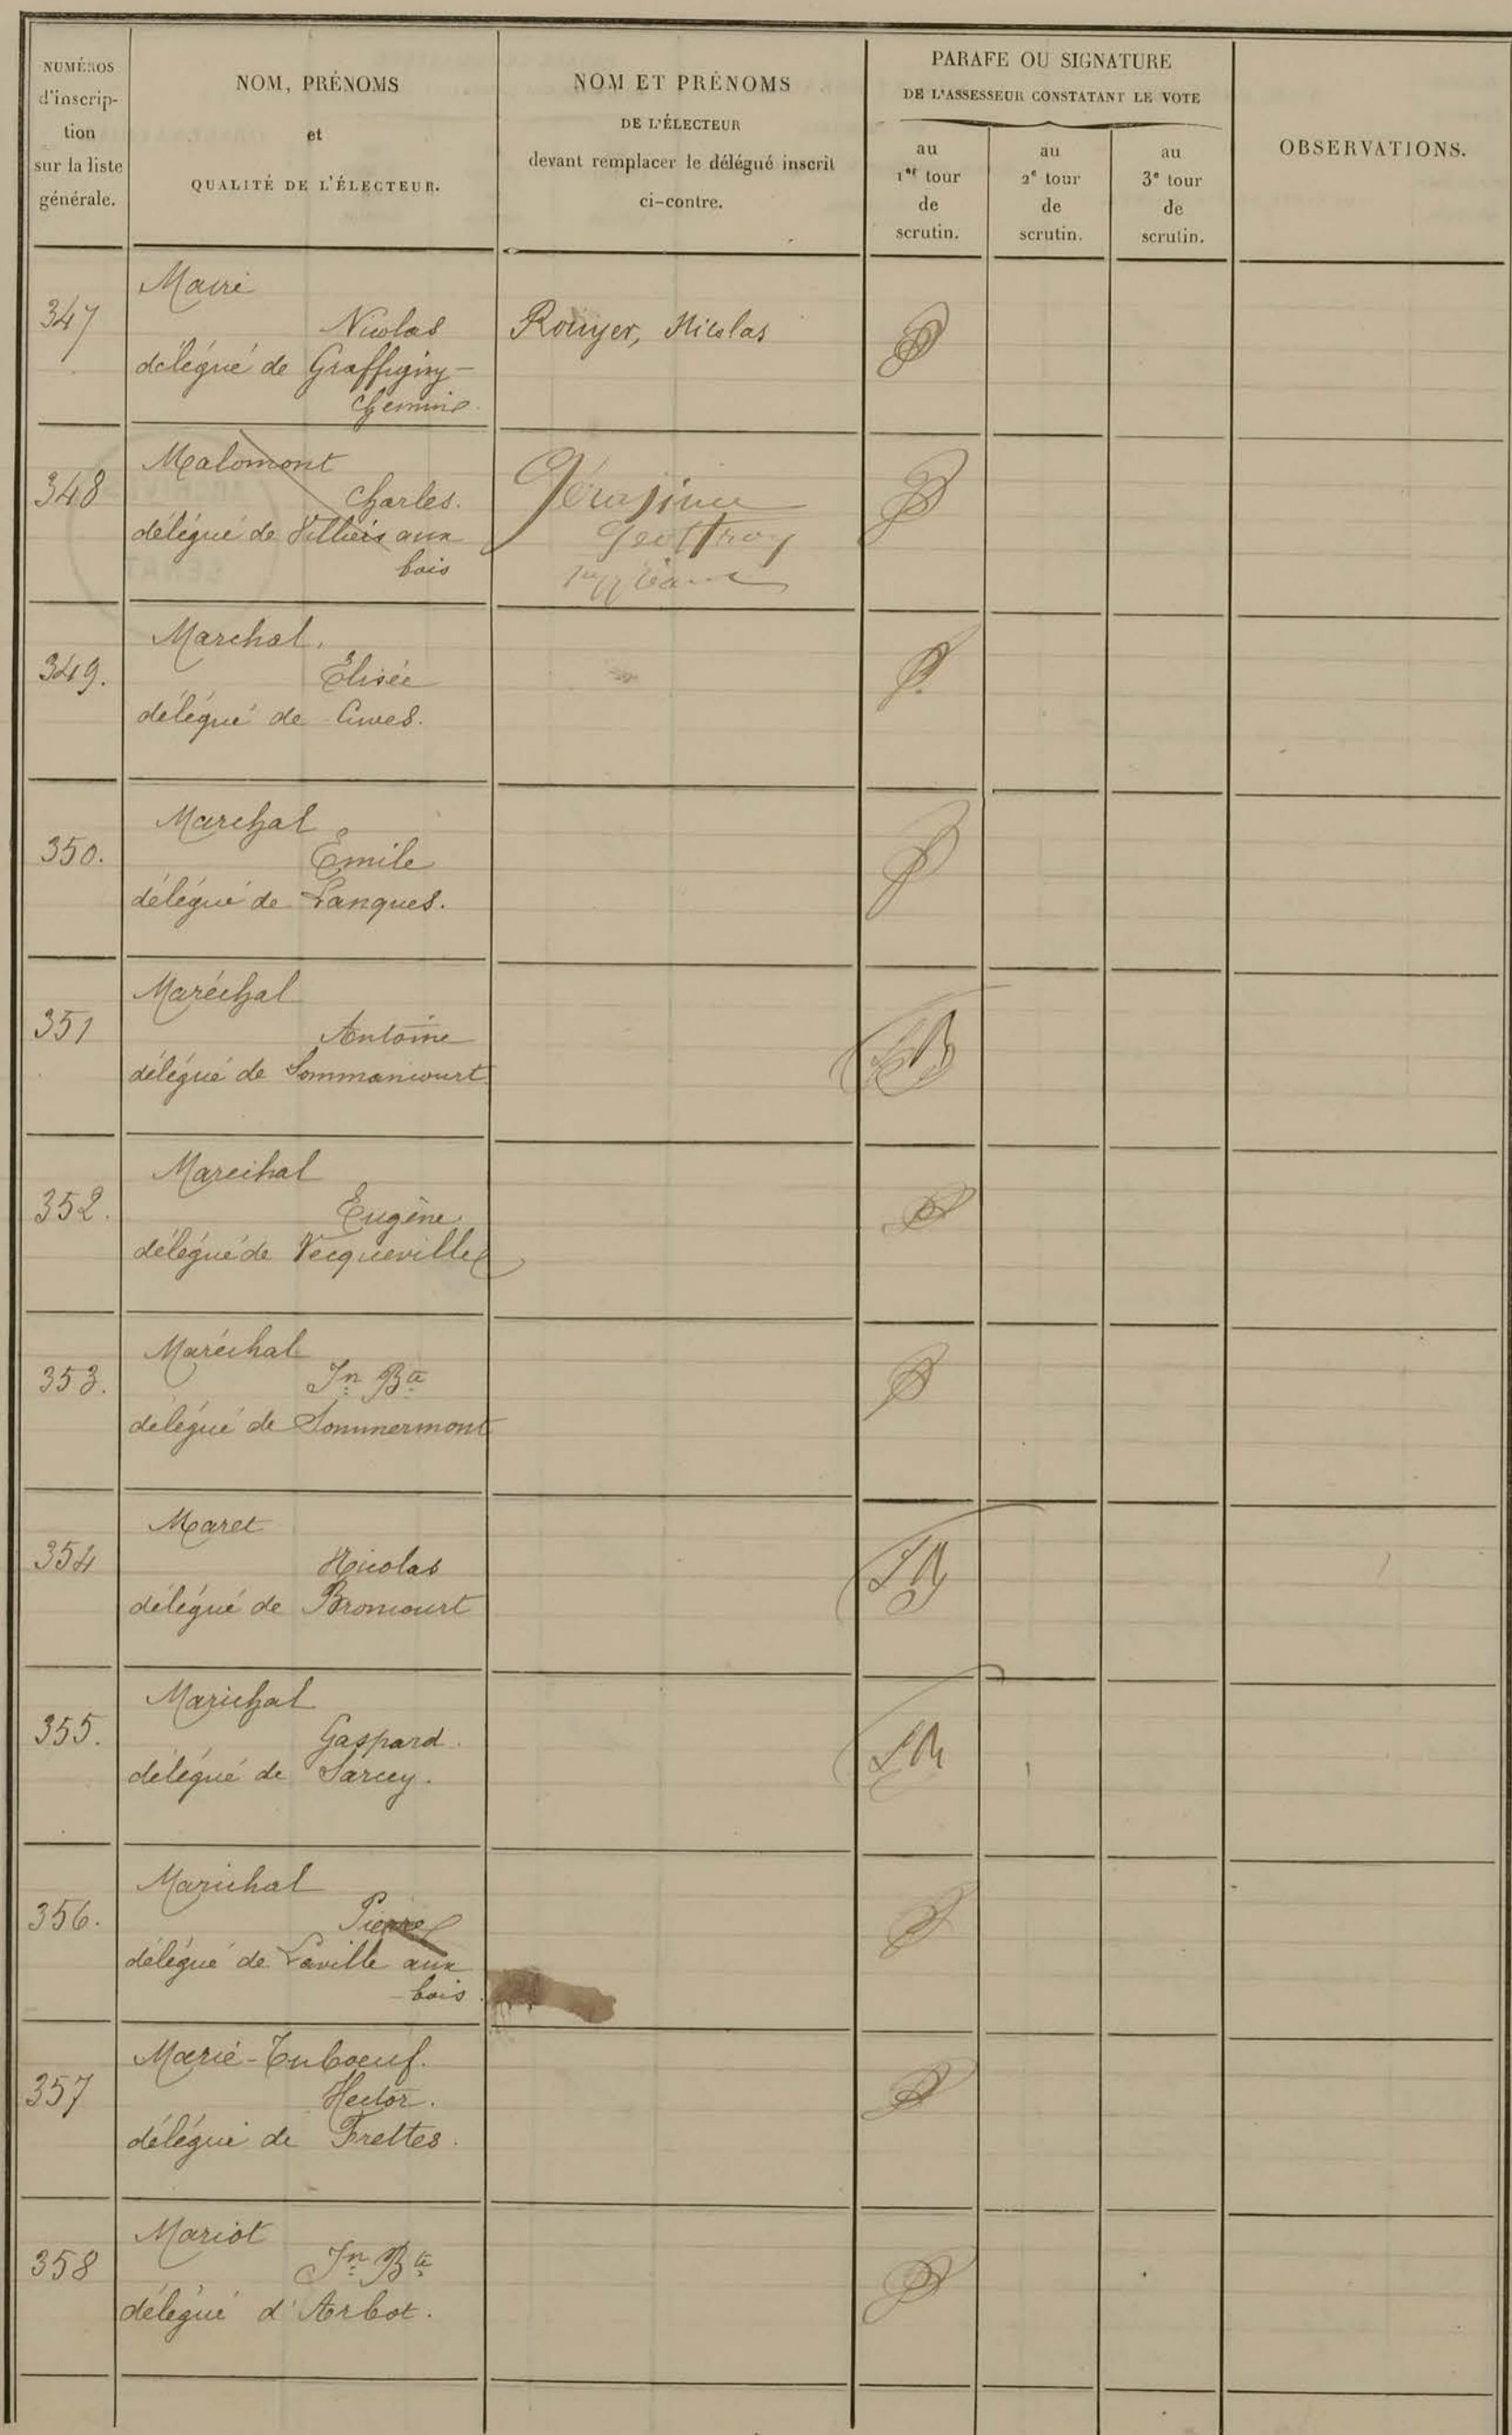 NUMÉROS
d'inscrip-
tion
sur la liste
générale.
NOM, PRÉNOMS
et
QUALITÉ DE L'ÉLECTEUR.
NOM ET PRÉNOMS
DE L'ÉLECTEUR
devant remplacer le délégué inscrit
ci-contre.
PARAFE OU SIGNATURE
DE L'ASSESSEUR CONSTATANT LE VOTE
au
1er tour
de
scrutin.
au
2e tour
de
scrutin.
au
3e tour
de
scrutin.
OBSERVATIONS.
347
Nicolas
Rouyer, Nicolas
délégué de Graffigny-
Chemin
348
Malomont
Charles.
délégué de Villiers aux
bois
Geoffroy
suppléant
349.
Marchal,
Elisée
délégué de Cuves.
350.
Marchal
Emile
délégué de Lanques.
351
Maréchal
Antoine
délégué de Sommancourt
352.
Marechal
Eugène
délégué de Vecqueville
353.
Maréchal
Jn Bte
délégué de Sommermont
354
Maret
Nicolas
délégué de Broncourt
355.
Maréchal
Gaspard.
délégué de Sarcey.
356.
Maréchal
Pierre
délégué de Laville aux
bois.
357
Marié-Tuboeuf.
Hector.
délégué de Frettes.
358
Mariot
Jn Bte
délégué d'Arbot.